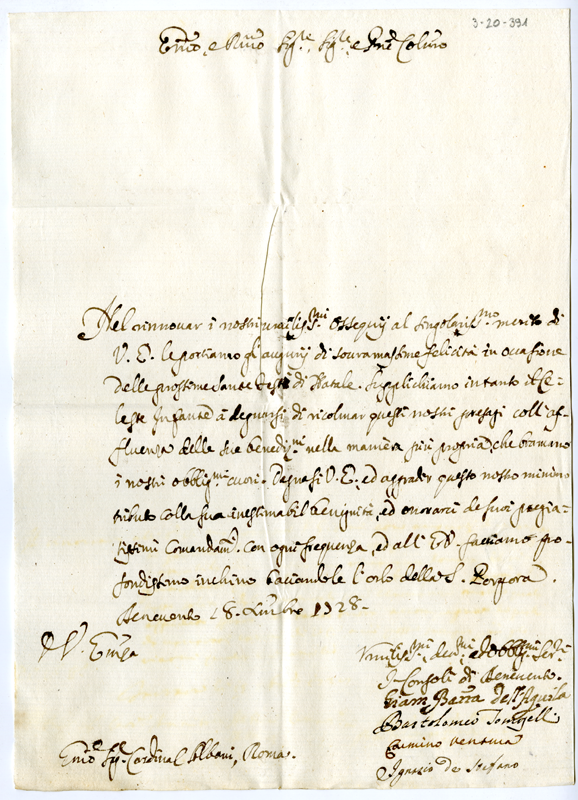 3-20-391
Em.mo, e R.mo Sig.re, Sig.re, e P.ne Col.mo
Nel rinnovar i nostri umiliss.mi ossequij al singolariss.mo merito di
V. E. le portiamo gl'augurij di sovramassime felicità in occasione
delle prossime sante feste di Natale. Supplichiamo intanto il Ce-
leste Infante à degnarsi di ricolmar questi nostri presagi coll'af-
fluenza delle sue benediz.ni nella maniera più propria, che bramano
i nostri obblig.mi cuori. Degnasi V. E., ed aggrader questo nostro minimo
tributo colla sua inestimabil benignità, ed onorarci de suoi pregia-
tissimi Comandam.ti con ogni frequenza, ed all' E.V. facciamo pro-
fondissimo inchino baciandole l'orlo della S. Porpora.
Benevento 18. Xmbre 1728-
D V. Emza
Umiliss.mi, dev.mi, ed obblig.mi Ser.i
I Consoli di Benevento.
Giam Batta dell'Aquila
Bartolomeo
Ventura
Ignazio de Stefano
Em.o Sig. Cardinal Albani, Roma.